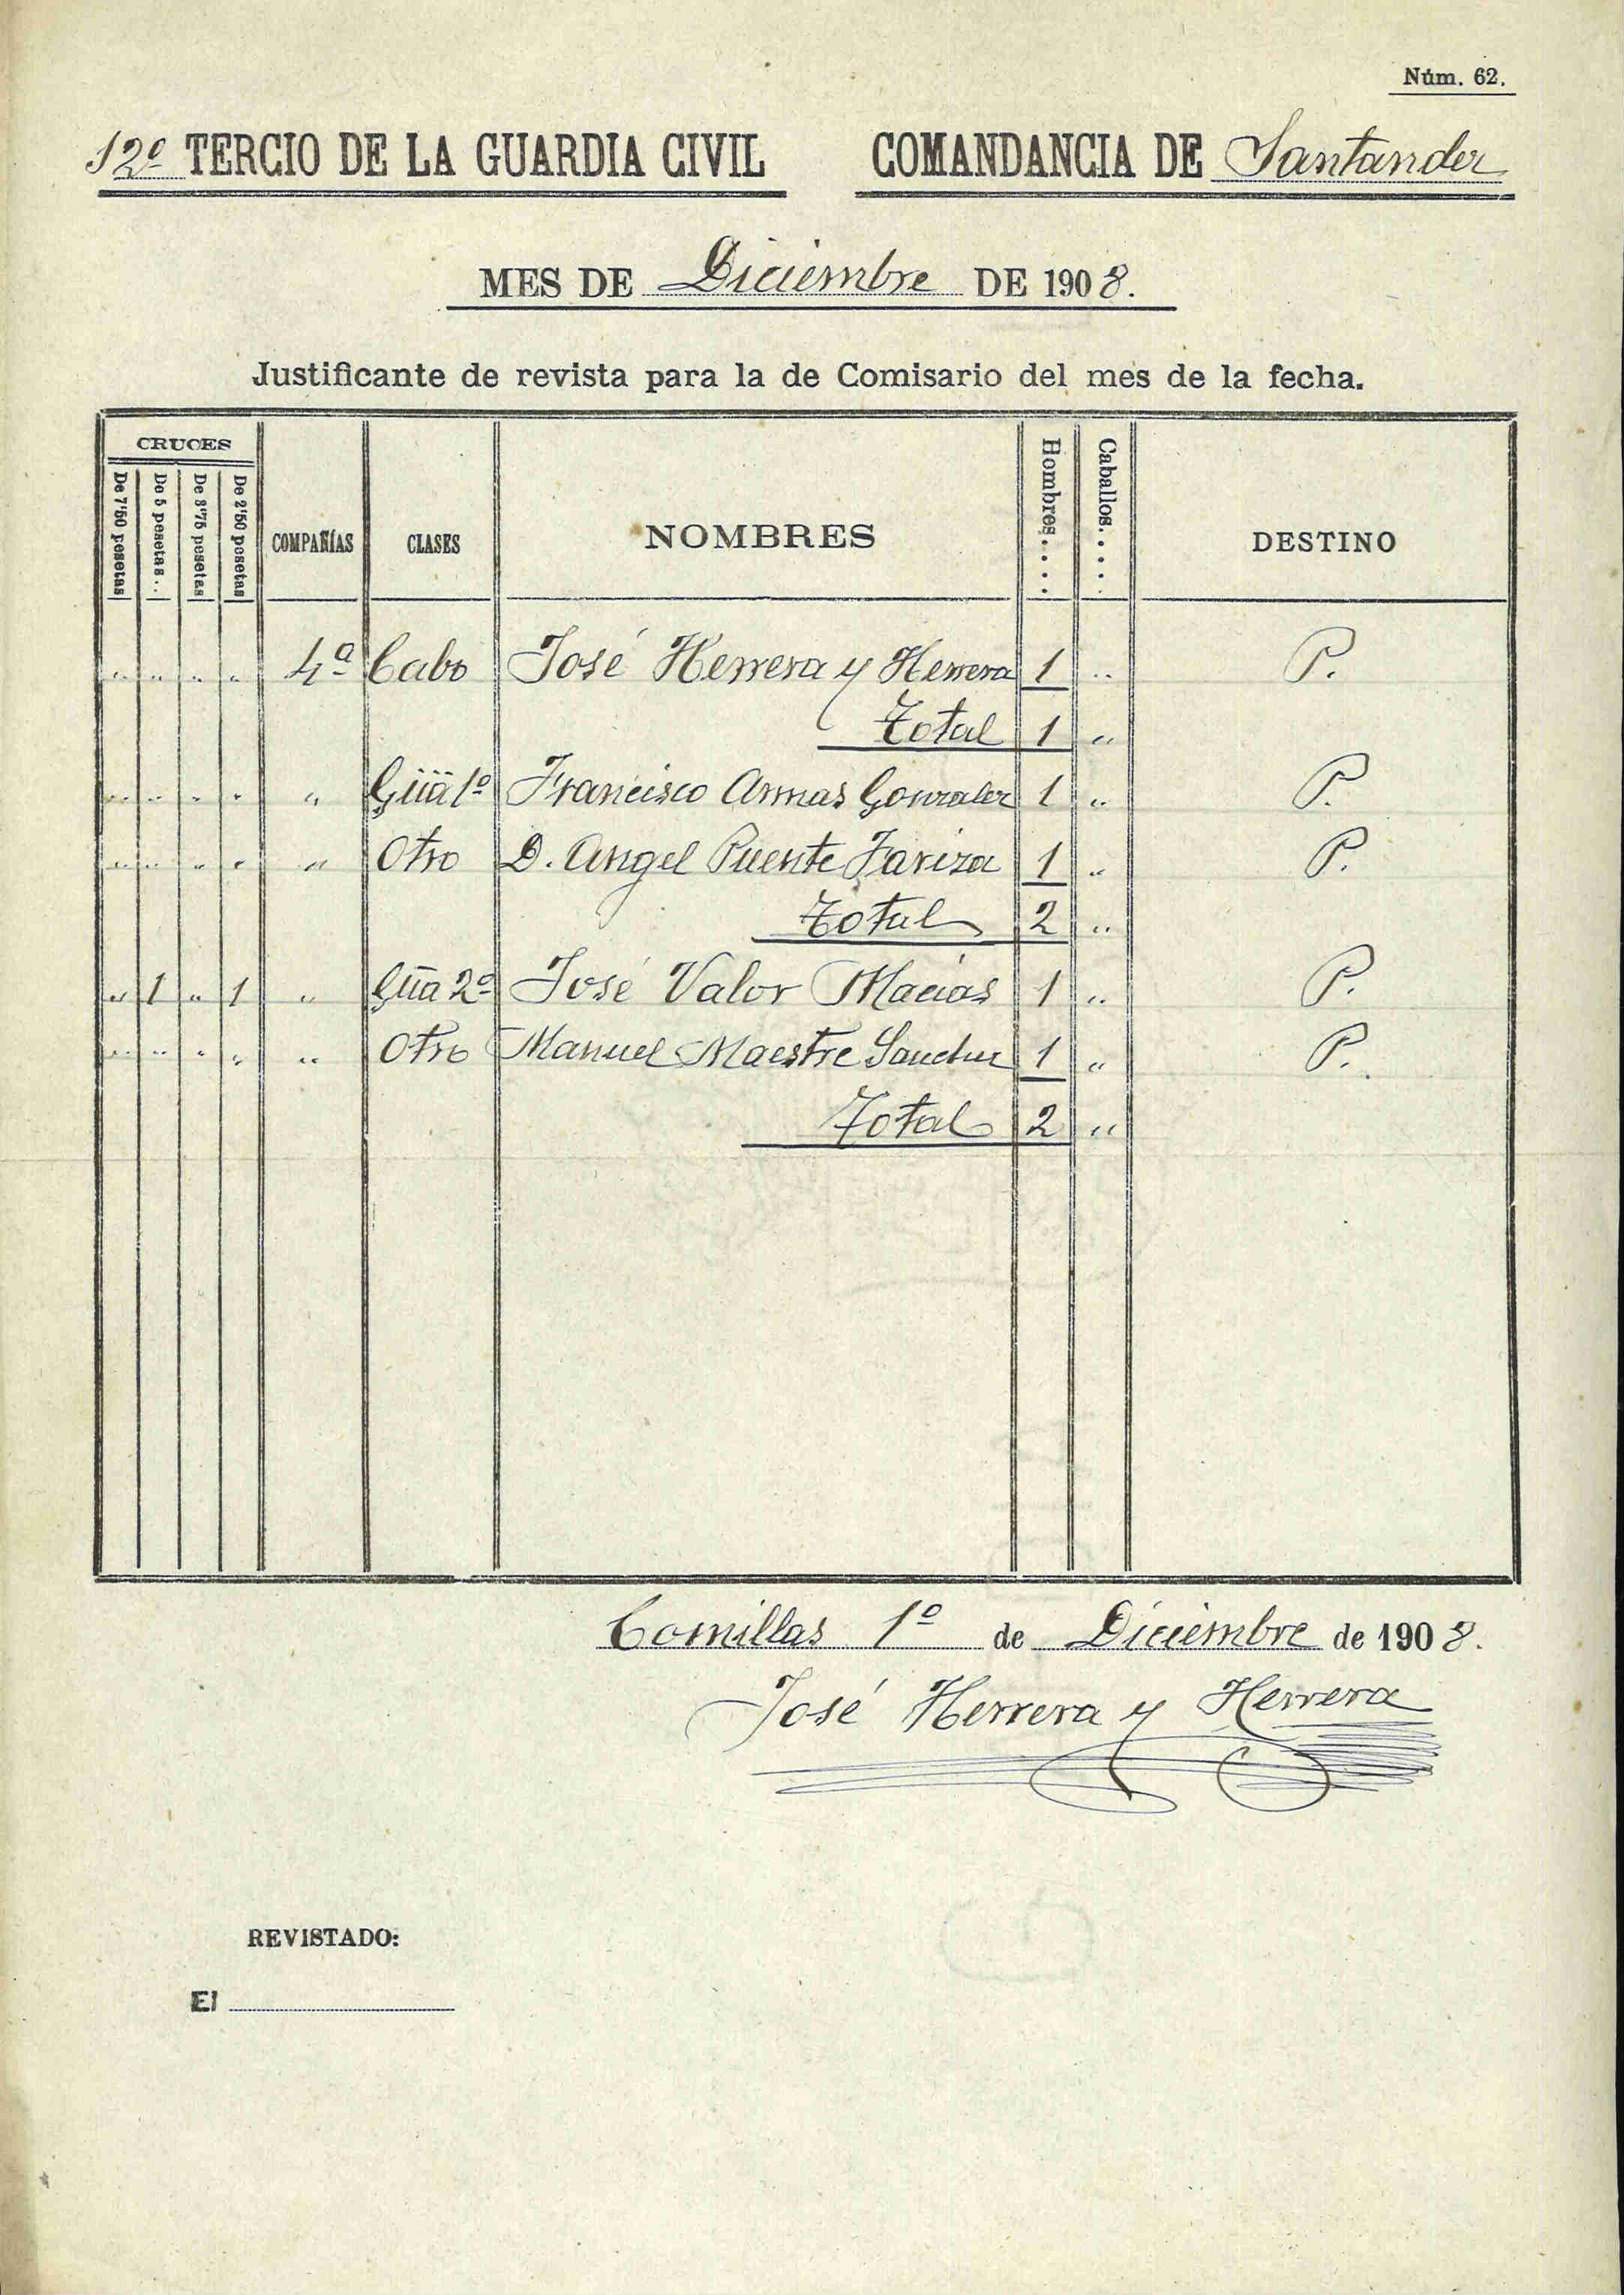 Núm. 62.
12º TERCIO DE LA GUARDIA CIVIL COMANDANCIA DE Santander
MES DE Diciembre DE 1908.
Justificante de revista para la de Comisario del mes de la fecha.
CRUCES
De 7'50 pesetas De 5 pesetas.. De 3'75 pesetas De 2'50 pesetas COMPAÑÍAS CLASES NOMBRES Hombres.... Caballos..... DESTINO
" " " " 4ª Cabo José Herrera y Herrera 1 " P.
Total 1 "
" " " " " Güä 1º Francisco Armas Gonzalez 1 " P.
" " " " " Otro D. Angel Puente Fariza 1 " P.
Total 2 "
" 1 " 1 " Güa 2º José Valor Macias 1 " P.
" " " " " Otro Manuel Maestre Sanchez 1 " P.
Total 2 "
Comillas 1º de Diciembre de 1908.
José Herrera y Herrera
REVISTADO:
El